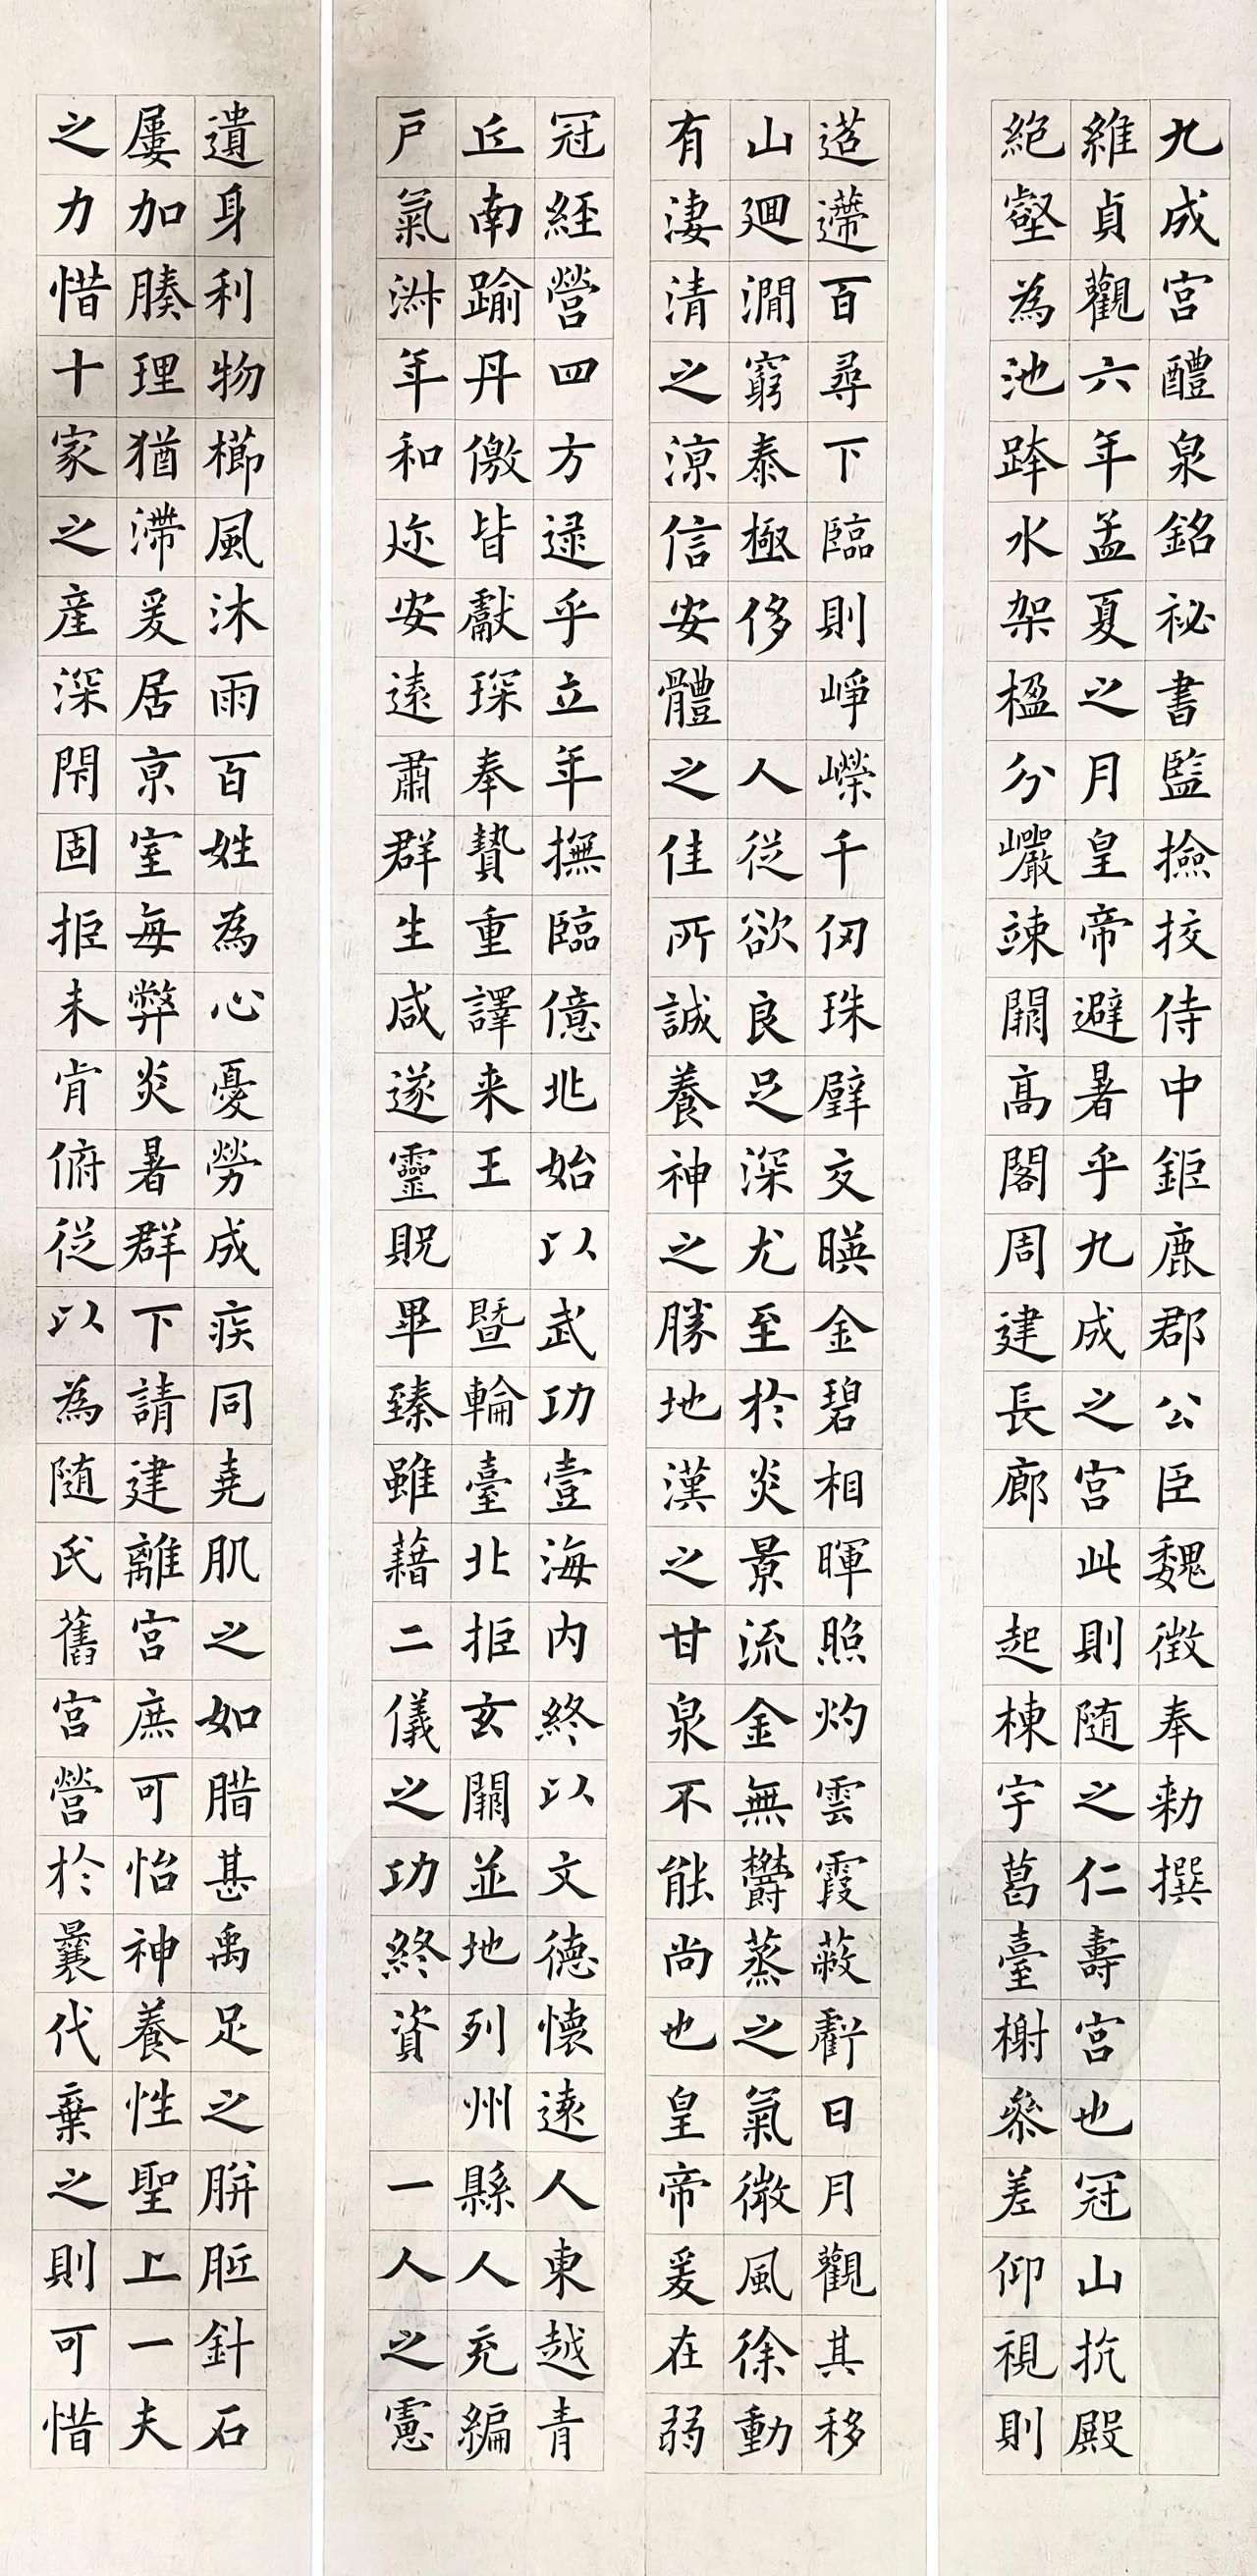 九成宮醴泉銘祕書監撿挍侍中鉅鹿郡公臣魏徵奉勑撰
維貞觀六年孟夏之月皇帝避暑乎九成之宮此則随之仁壽宮也冠山抗殿
絕壑為池跨水架楹分巖竦闕高閣周建長廊 起棟宇葛臺榭叅差仰視則
迢遰百尋下臨則崢嶸千仞珠璧交暎金碧相暉照灼雲霞蔽虧日月觀其移
山迴澗窮泰極侈 人從欲良足深尤至於炎景流金無鬱蒸之氣微風徐動
有淒清之涼信安體之佳所誠養神之勝地漢之甘泉不能尚也皇帝爰在弱
冠經營四方逮乎立年撫臨億兆始以武功壹海内終以文德懷遠人東越青
丘南踰丹徼皆獻琛奉贄重譯来王 暨輪臺北拒玄闕並地列州縣人充編
戶氣淑年和迩安遠肅群生咸遂靈貺畢臻雖藉二儀之功終資 一人之慮
遺身利物櫛風沐雨百姓為心憂勞成疾同堯肌之如腊甚禹足之胼胝針石
屢加腠理猶滯爰居京室每弊炎暑群下請建離宮庶可怡神養性聖上一夫
之力惜十家之産深閇固拒未肯俯從以為随氏舊宮營於曩代棄之則可惜